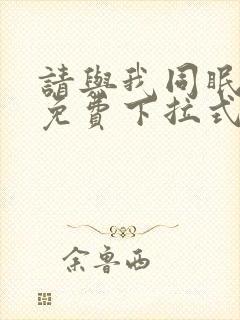 請與我同眠
免費下拉式
余魯西